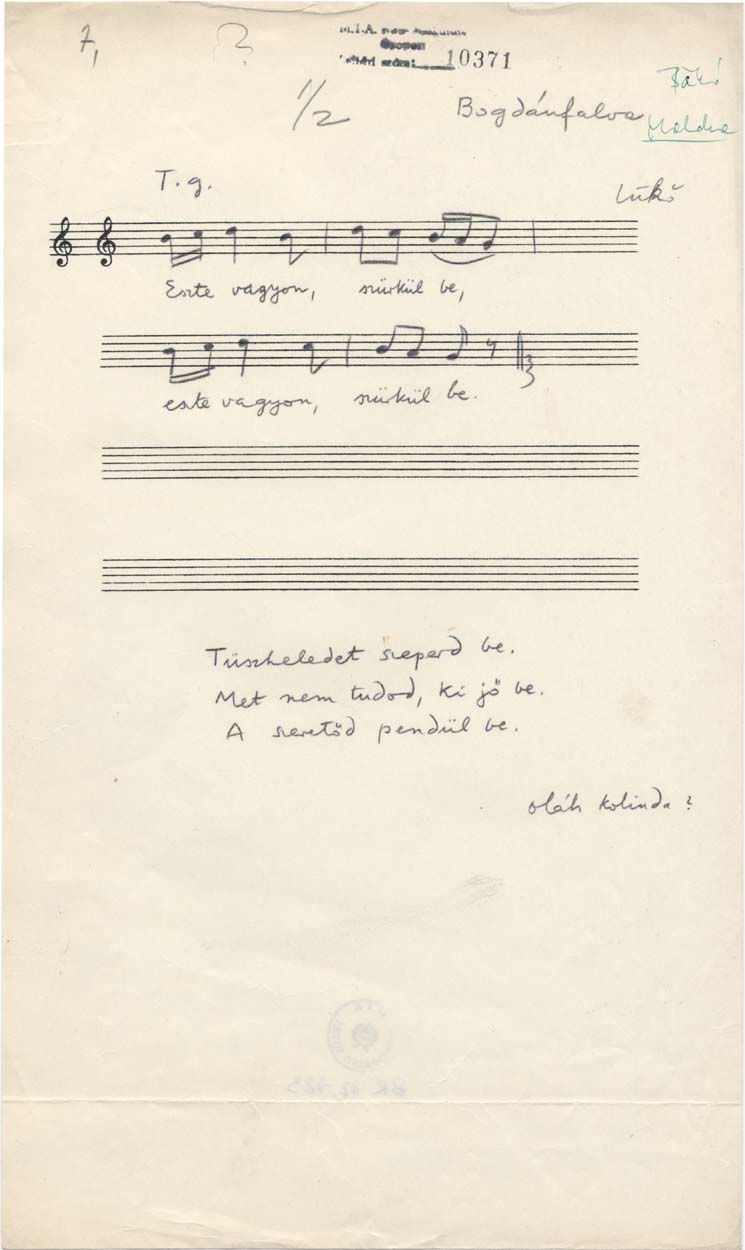 7,
?
M.I.A.
10371
1/2
Bogdánfalva
Bákó
Moldva
T. g.
Lükő
Eszte vagyon, szürkül be,
eszte vagyon, szürkül be.
Tüszheledet szeperd be.
Met nem tudod, ki jő be.
A szeretőd pendül be.
oláh kolinda?